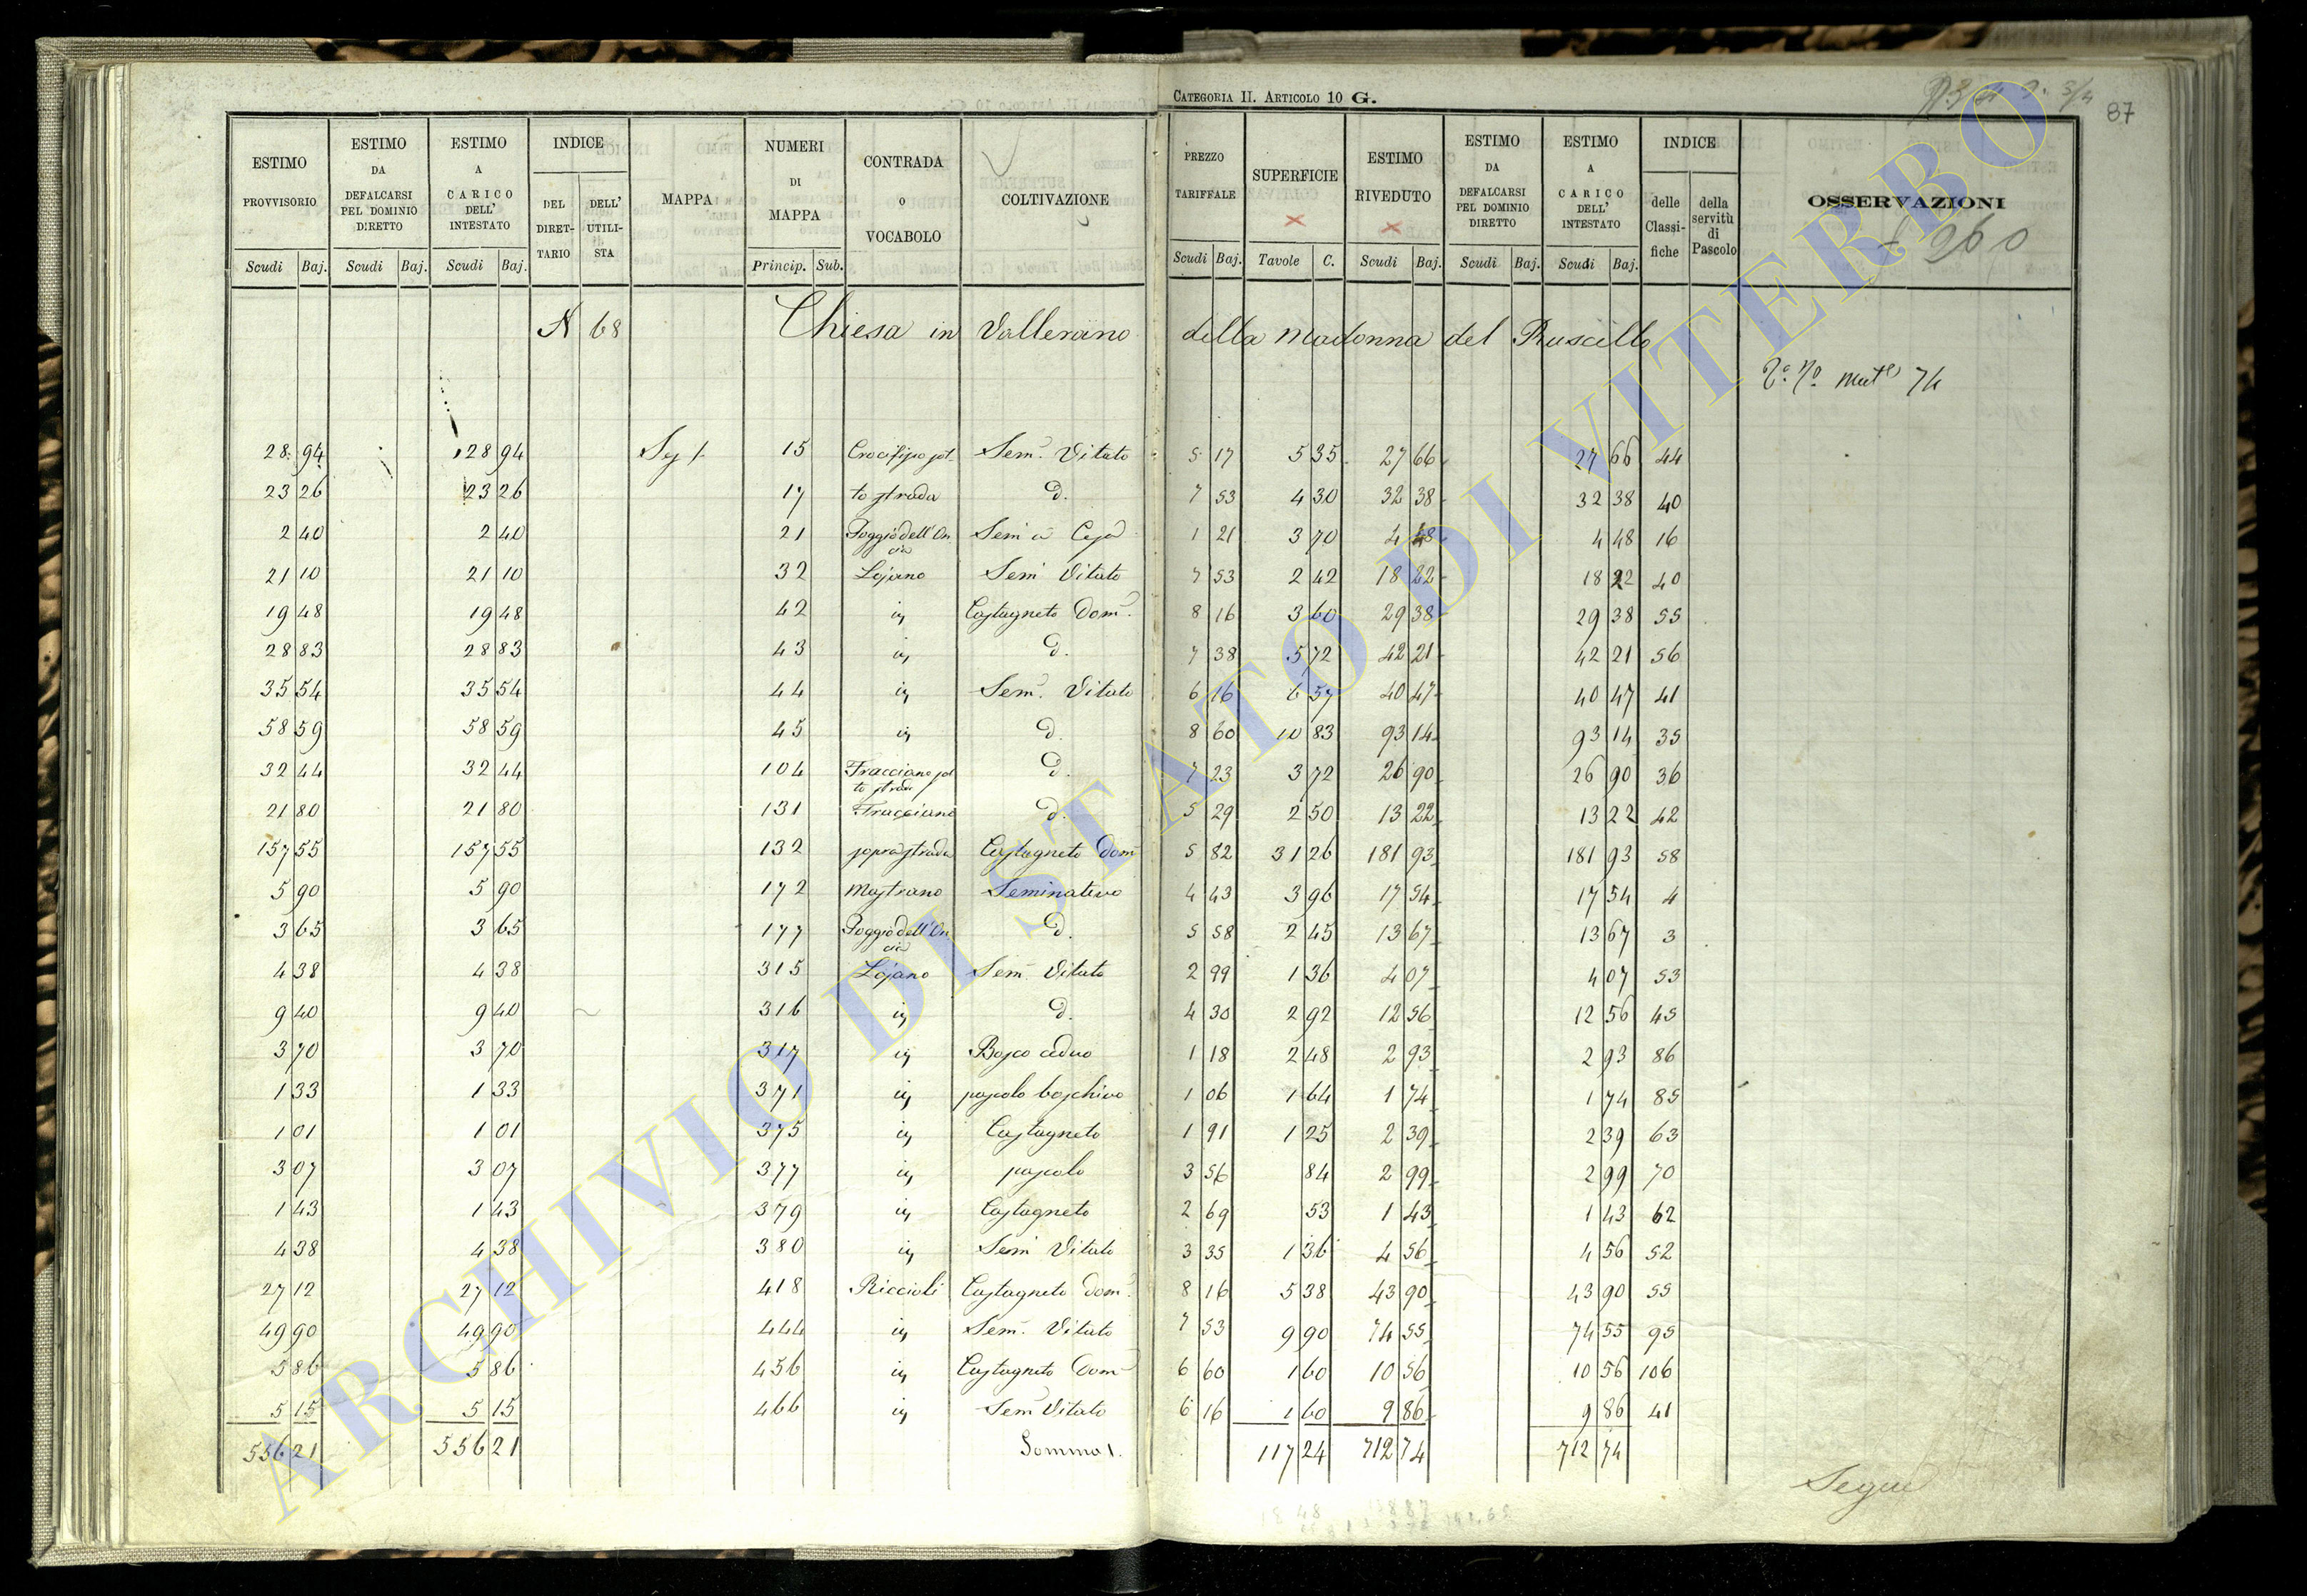 CATEGORIA II. ARTICOLO 10 G.
87
ESTIMO PROVVISORIO | ESTIMO DA DEFALCARSI PEL DOMINIO DIRETTO | ESTIMO A CARICO DELL' INTESTATO | INDICE | MAPPA | NUMERI DI MAPPA | CONTRADA O VOCABOLO | COLTIVAZIONE | PREZZO TARIFFALE | SUPERFICIE | ESTIMO RIVEDUTO | ESTIMO DA DEFALCARSI PEL DOMINIO DIRETTO | ESTIMO A CARICO DELL' INTESTATO | INDICE | OSSERVAZIONI
DEL DIRET-TARIO | DELL' UTILI-STA | delle Classi-fiche | della servitù di Pascolo
Scudi | Baj. | Scudi | Baj. | Scudi | Baj. | Princip. | Sub. | Scudi | Baj. | Tavole | C. | Scudi | Baj. | Scudi | Baj. | Scudi | Baj.
960
N 68 Chiesa in Vallerano della Madonna del Ruscillo
74
28 94 | 28 94 | 15 | Sem. Vitato | 5 17 | 5 35 | 27 66 | 27 66 | 44
23 26 | 23 26 | 17 | to strada | d. | 7 53 | 4 30 | 32 38 | 32 38 | 40
2 40 | 2 40 | 21 | Poggio dell'On | 1 21 | 3 70 | 4 48 | 4 48 | 16
cia
21 10 | 21 10 | 32 | Lojano | Sem Vitato | 7 53 | 2 42 | 18 22 | 18 22 | 40
19 48 | 19 48 | 42 | iy | Castagneto Dom. | 8 16 | 3 60 | 29 38 | 29 38 | 55
28 83 | 28 83 | 43 | iy | d. | 7 38 | 5 72 | 42 21 | 42 21 | 56
35 54 | 35 54 | 44 | iy | Sem. Vitato | 6 16 | 6 57 | 40 47 | 40 47 | 41
58 59 | 58 59 | 45 | iy | d. | 8 60 | 10 83 | 93 14 | 93 14 | 35
32 44 | 32 44 | 104 | Fracciano sot | d. | 7 23 | 3 72 | 26 90 | 26 90 | 36
to strada
21 80 | 21 80 | 131 | Fracciano | d. | 5 29 | 2 50 | 13 22 | 13 22 | 42
157 55 | 157 55 | 132 | sopra strada | Castagneto Dom | 5 82 | 31 26 | 181 93 | 181 93 | 58
5 90 | 5 90 | 172 | Mastrano | Seminativo | 4 43 | 3 96 | 17 54 | 17 54 | 4
3 65 | 3 65 | 177 | Poggio dell'On | d. | 5 58 | 2 45 | 13 67 | 13 67 | 3
cia
4 38 | 4 38 | 315 | Lojano | Sem. Vitato | 2 99 | 1 36 | 4 07 | 4 07 | 53
9 40 | 9 40 | 316 | iy | d. | 4 30 | 2 92 | 12 56 | 12 56 | 45
3 70 | 3 70 | 317 | iy | Bosco ceduo | 1 18 | 2 48 | 2 93 | 2 93 | 86
1 33 | 1 33 | 371 | iy | pascolo boschivo | 1 06 | 1 64 | 1 74 | 1 74 | 85
1 01 | 1 01 | 375 | iy | Castagneto | 1 91 | 1 25 | 2 39 | 2 39 | 63
3 07 | 3 07 | 377 | iy | pascolo | 3 56 | 84 | 2 99 | 2 99 | 70
1 43 | 1 43 | 379 | iy | Castagneto | 2 69 | 53 | 1 43 | 1 43 | 62
4 38 | 4 38 | 380 | iy | Sem Vitato | 3 35 | 1 36 | 4 56 | 4 56 | 52
27 12 | 27 12 | 418 | Riccioli | Castagneto Dom. | 8 16 | 5 38 | 43 90 | 43 90 | 55
49 90 | 49 90 | 444 | iy | Sem. Vitato | 7 53 | 9 90 | 74 55 | 74 55 | 95
5 86 | 5 86 | 456 | iy | Castagneto Dom | 6 60 | 1 60 | 10 56 | 10 56 | 106
5 15 | 5 15 | 466 | iy | Sem Vitato | 6 16 | 1 60 | 9 86 | 9 86 | 41
556 21 | 556 21 | Somma 1. | 117 24 | 712 74 | 712 74
Segue
ARCHIVIO DI STATO DI VITERBO